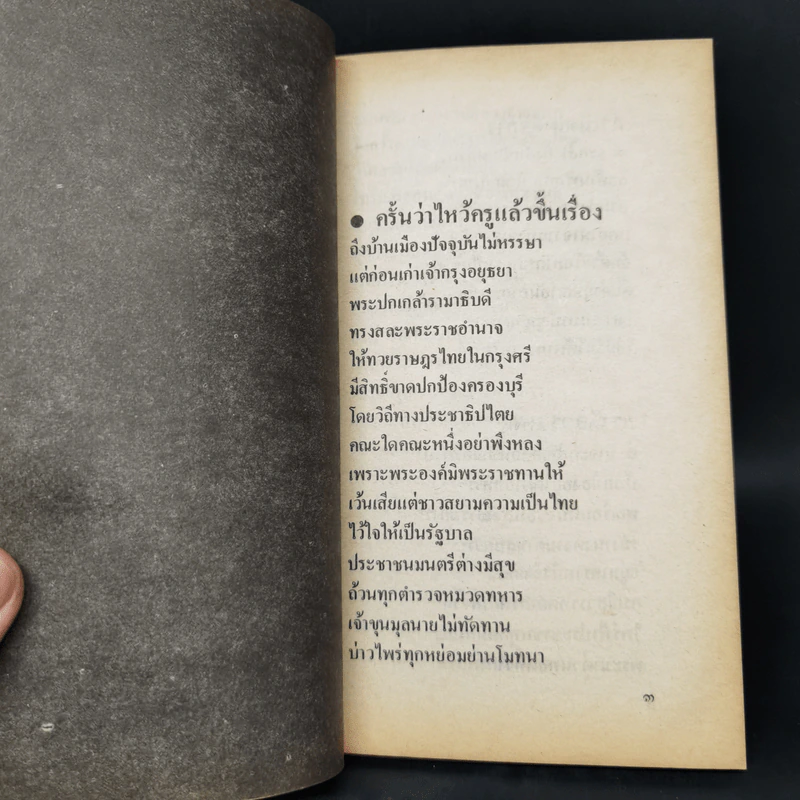 ● ครั้นว่าไหว้ครูแล้วขึ้นเรื่อง
ถึงบ้านเมืองปัจจุบันไม่หรรษา
แต่ก่อนเก่าเจ้ากรุงอยุธยา
พระปกเกล้ารามาธิบดี
ทรงสละพระราชอำนาจ
ให้ทวยราษฎรไทยในกรุงศรี
มีสิทธิ์ขาดปกป้องครองบุรี
โดยวิถีทางประชาธิปไตย
คณะใดคณะหนึ่งอย่าพึงหลง
เพราะพระองค์มิพระราชทานให้
เว้นเสียแต่ชาวสยามความเป็นไทย
ไว้ใจให้เป็นรัฐบาล
ประชาชนมนตรีต่างมีสุข
ถ้วนทุกตำรวจหมวดทหาร
เจ้าขุนมุลนายไม่ทัดทาน
บ่าวไพร่ทุกหย่อมย่านโมทนา
๓